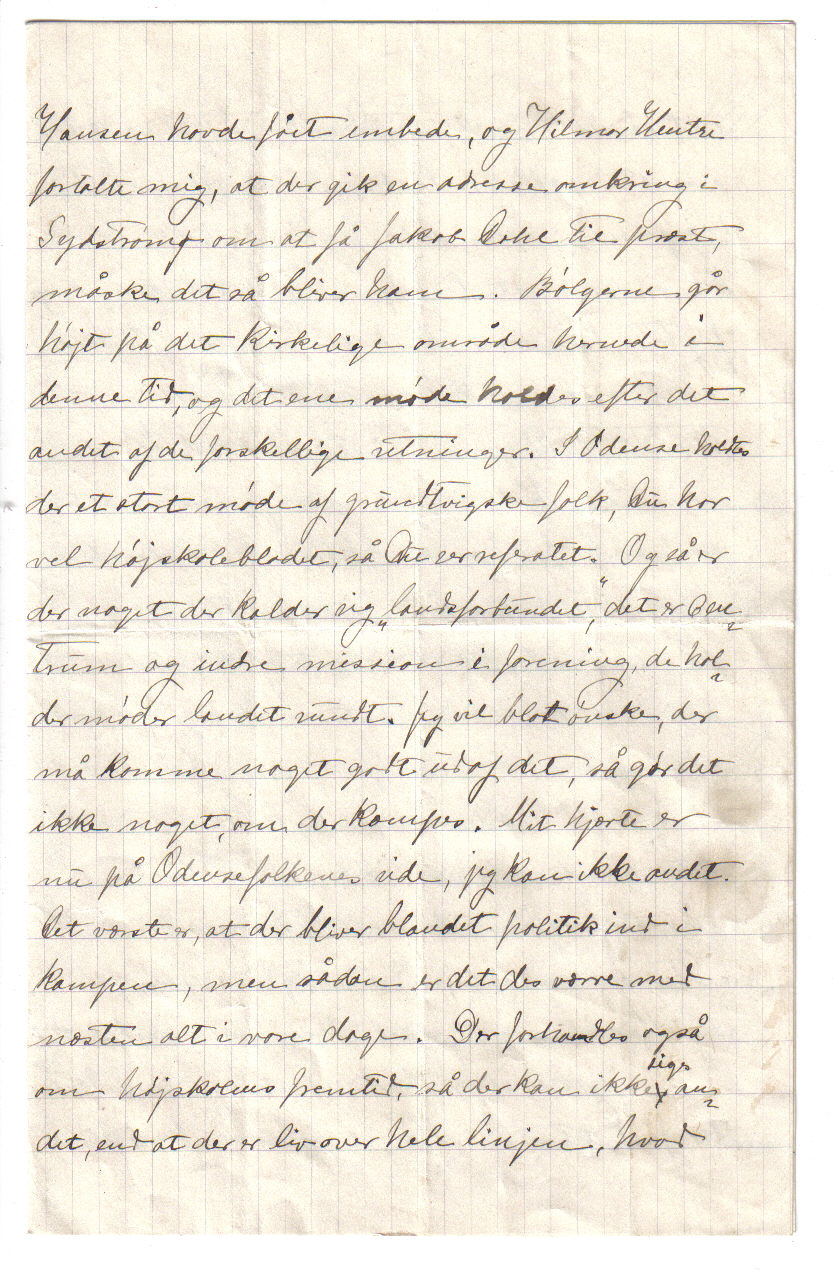 Hansen havde fået embede, og Hilmar Hentze
fortalte mig, at der gik en adresse omkring i
Sydstrømø om at få Jakob Dahl til præst,
måske det så bliver ham. Bølgerne går
højt på det kirkelige område hernede i
denne tid, og det ene møde holdes efter det
andet af de forskellige retninger. I Odense holdtes
der et stort møde af grundtvigske folk, Du har
vel højskolebladet, så Du ser referatet. Også er
der noget der kalder sig „landsforbundet“, det er Cen-
trum og indre mission i forening, de hol-
der møder landet rundt. Jeg vil blot ønske, der
må komme noget godt ud af det, så gør det
ikke noget, om der kampes. Mit hjærte er
nu på Odensefolkenes side, jeg kan ikke andet.
Det værste er, at der bliver blandet politik ind i
kampen, men sådan er det des værre med
næsten alt i vore dage. Der forhandles også
om højskolens fremtid, så der kan ikke siges an-
det, end at der er liv over hele linjen, hvad